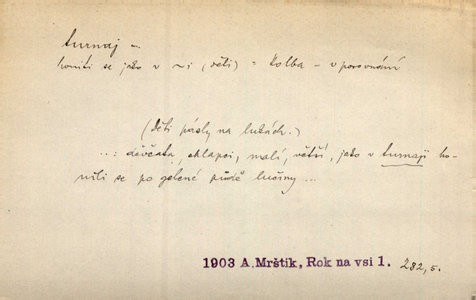 turnaj –
honiti se jako v ~i (děti) = kolba – v porovnání
(děti pásly na lukách.)
...: děvčata, chlapci, malí, větší, jako v turnaji ho-
nili se po zelené půdě lučiny ...
1903 A. Mrštík, Rok na vsi 1. 282,5.